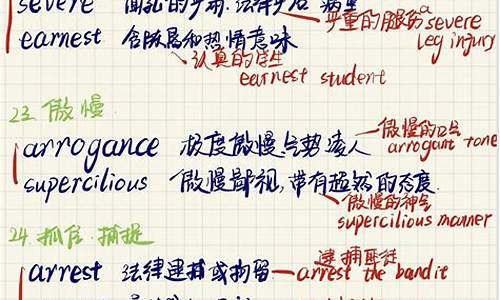 severe
严重的腿伤 a severe leg injury
earnest 含庄严和热情意味
认真的学生
earnest student
23. 傲慢
arrogance 极度傲慢,气势凌人
傲慢的口气
arrogant tone
supercilious 傲慢鄙视,带有超然的态度.
傲慢的神气
supercilious manner
24. 抓住.捕捉
arrest 法律逮捕或拘留
逮捕匪徒
arrest the bandit